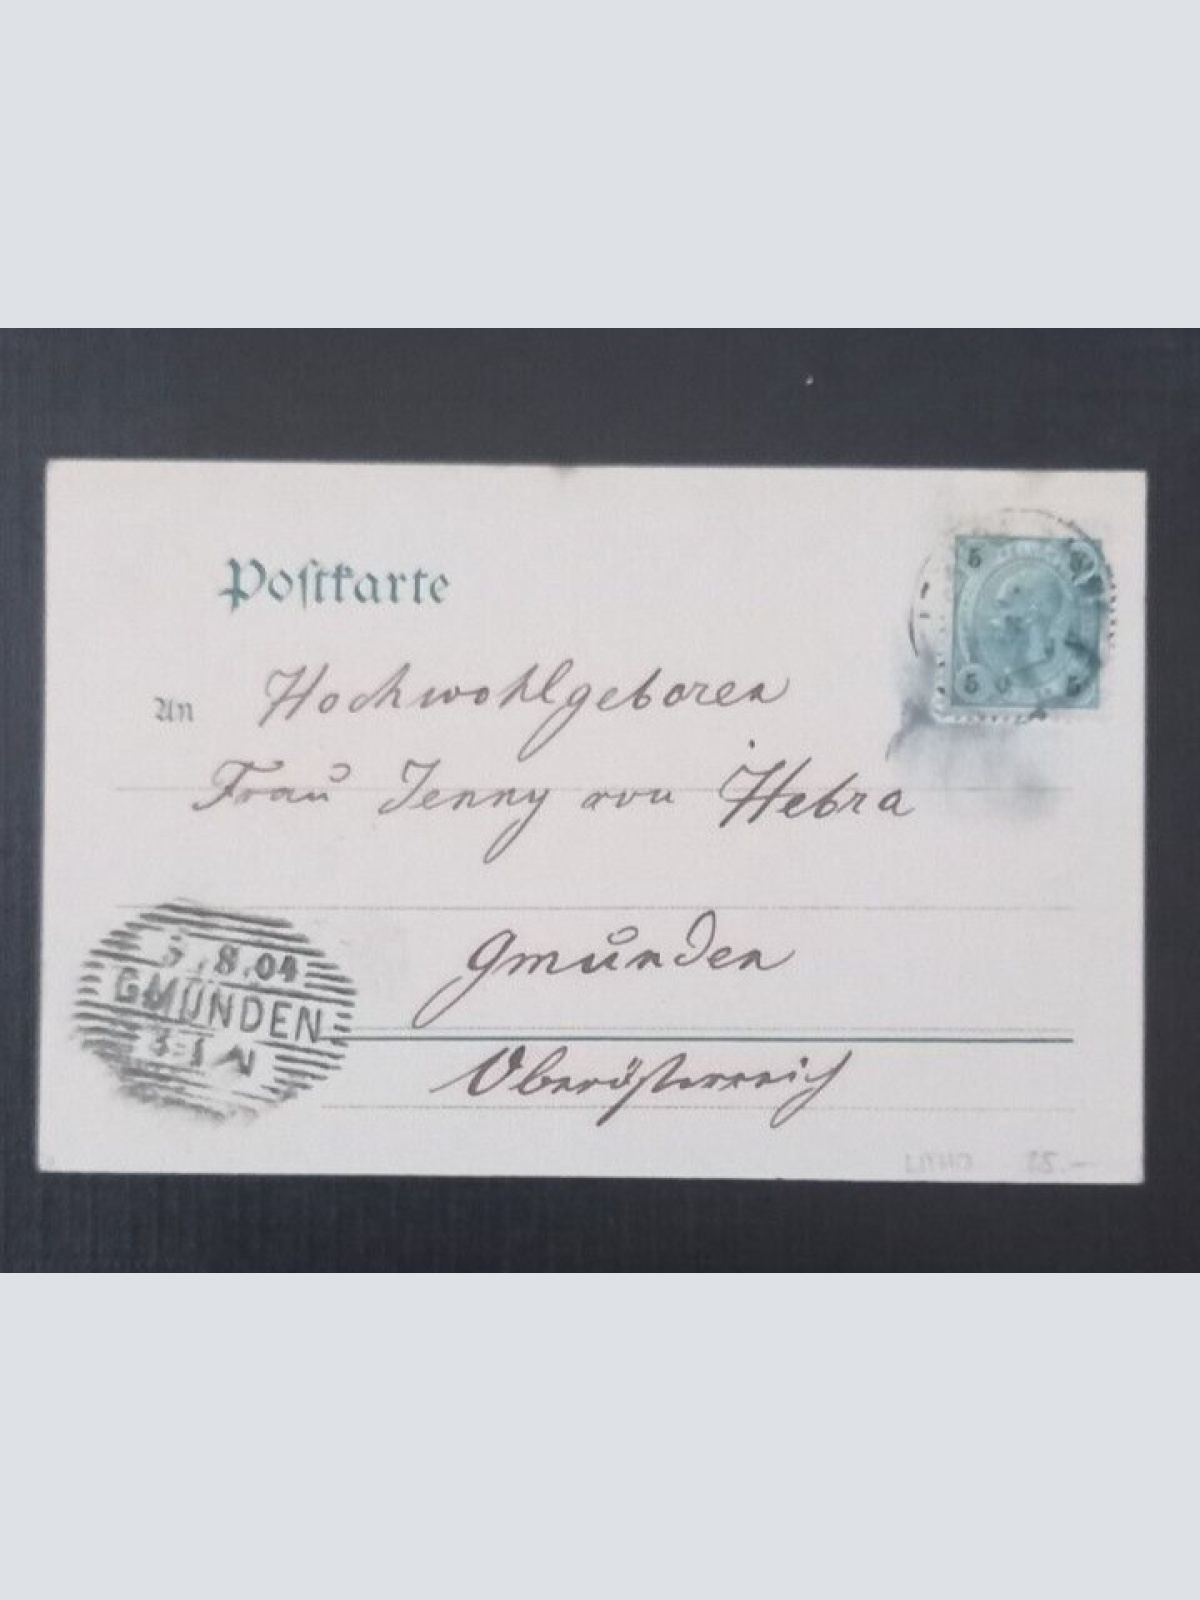 Postkarte
5
5
5
An Hochwohlgeboren
Frau Jenny von Hebra
Gmunden
Oberösterreich
5.8.04
GMUNDEN
3-1 N
25.—